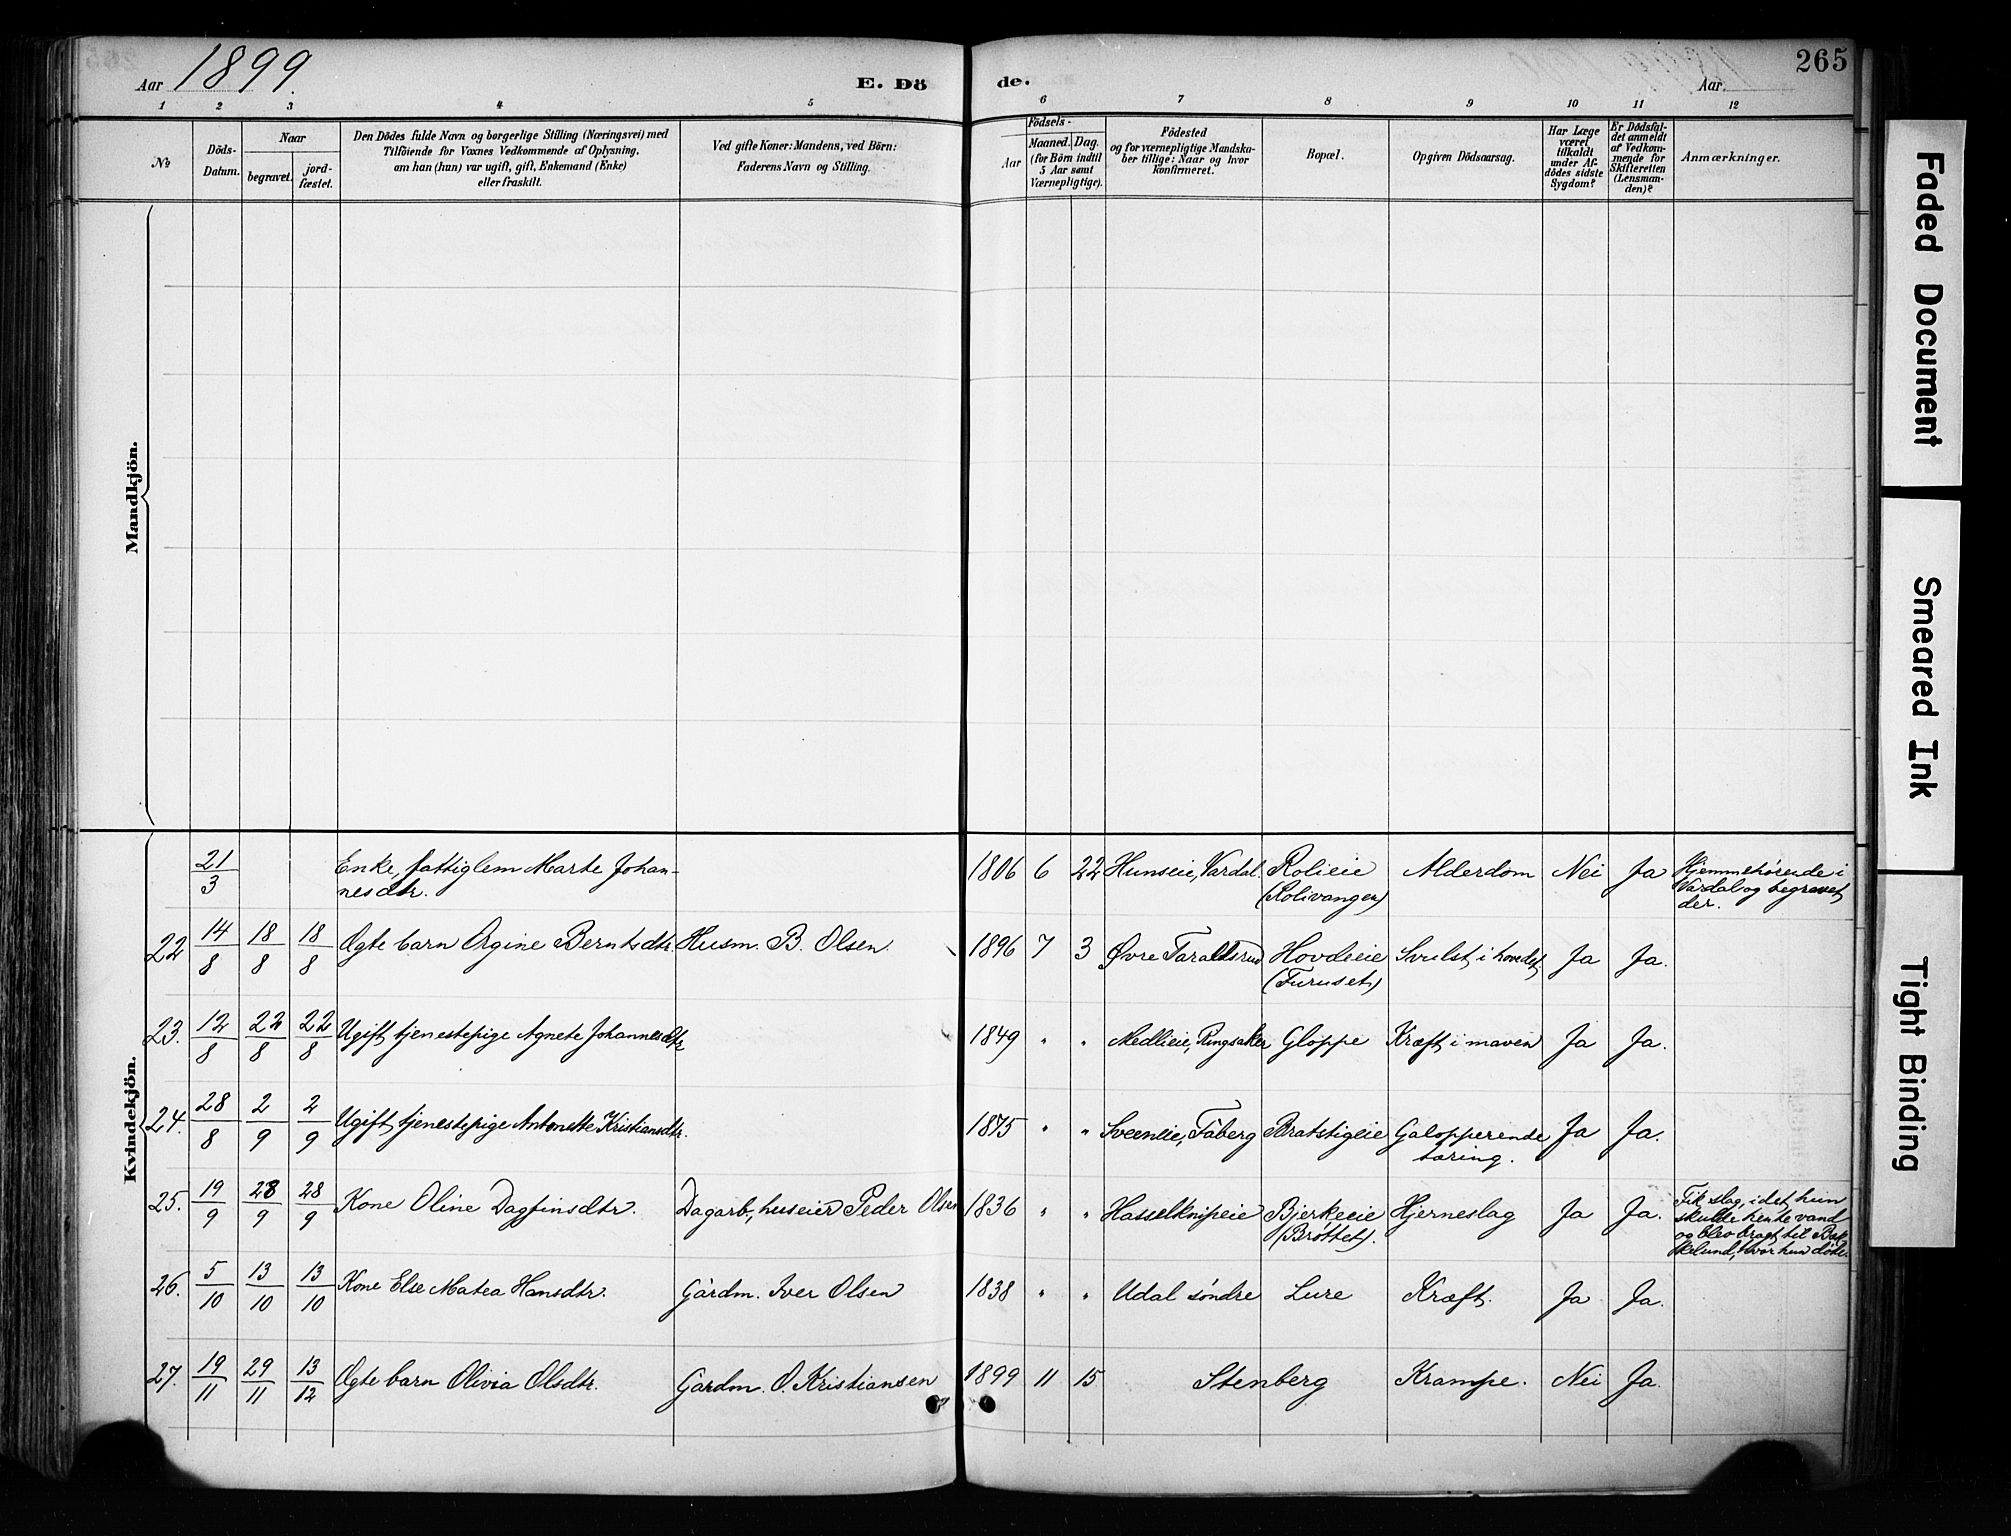 Aar 1899. E. Dö de. Aar 265
1 2 3 4 5 6 7 8 9 10 11 12
No
Döds-Datum.
Naar
begravet.
jord-fæstet.
Den Dödes fulde Navn og borgerlige Stilling (Næringsvei) med
Tilföiende for Voxnes Vedkommende af Oplysning,
om han (hun) var ugift, gift, Enkemand (Enke)
eller fraskilt.
Ved gifte Koner: Mandens, ved Börn:
Faderens Navn og Stilling.
Födsels-
Aar
Maaned. Dag.
(for Börn indtil
5 Aar samt
Værnepligtige).
Födested
og for værnepligtige Mandska-
ber tillige: Naar og hvor
konfirmeret.
Bopæl.
Opgiven Dödsaarsag.
Har Læge
været
tilkaldt
under Af-
dödes sidste
Sygdom?
Er Dödsfal-
det anmeldt
af Vedkom-
mende for
Skifteretten
(Lensman-
den)?
Anmærkninger.
Mandkjön.
Kvindekjön.
21/3 Enke, fattiglem Marte Johan- 1806 6 22 Hunseie, Vardal. Rolieie Alderdom Nei Ja Hjemmehørende i
nesdtr. (Rolivangen) Vardal og begravet
der.
22 14/8 18/8 18/8 Ægte barn Orgine Berntsdtr Husm. B. Olsen 1896 7 3 Øvre Taraldsrud Hovdeeie Svulst i hovedet Ja Ja.
(Furuset)
23. 12/8 22/8 22/8 Ugift tjenestepige Agnete Johannesdtr 1849 " " Medlieie, Ringsaker Gloppe Kræft i maven Ja Ja.
24. 28/8 2/9 2/9 Ugift tjenestepige Antonette Kristiansdtr. 1875 " " Sveeneie, Fåberg Bratstigeie Galopperende Ja Ja.
tæring.
25. 19/9 28/9 28/9 Kone Oline Dagfinsdtr. Dagarb., huseier Peder Olsen 1836 " " Hasselknipeie Bjerkeeie Hjerneslag Ja Ja. Fik slag, idet hun
(Brøttet). skulde hente vand
og blev bragt til
hvor hun døde.
26. 5/10 13/10 13/10 Kone Else Matea Hansdtr. Gårdm. Iver Olsen 1838 " " Udal søndre Lure Kræft. Ja Ja.
27. 19/11 29/11 13/12 Ægte barn Olivia Olsdtr. Gårdm. O. Kristiansen 1899 11 15 Stenberg Krampe. Nei Ja.
Faded Document
Smeared Ink
Tight Binding